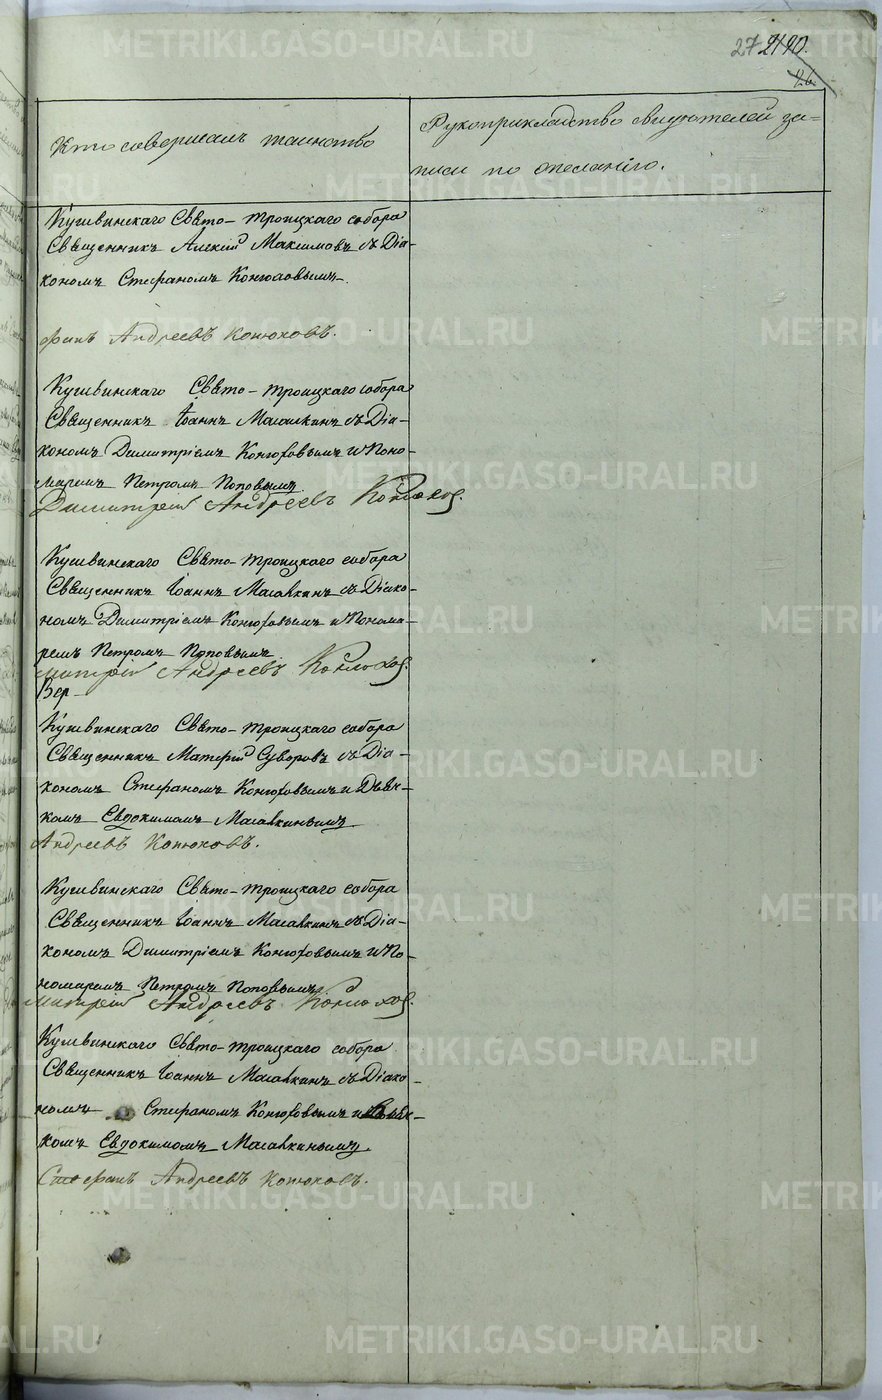 27 240.
26.
Кто совершалъ таинство
Рукоприкладство свидѣтелей за-
писи по желанію.
Кушвинскаго Свято-Троицкаго собора
Священникъ Алексій Максимовъ съ Діа-
кономъ Стефаномъ Конюховымъ.
фанъ Андреевъ Конюховъ.
Кушвинскаго Свято-Троицкаго собора
Священникъ Іоаннъ съ Діа-
кономъ Димитріемъ Конюховымъ и Поно-
маремъ Петромъ Поповымъ
Димитрій Андреевъ Конюхов.
Кушвинскаго Свято-Троицкаго собора
Священникъ Іоаннъ съ Діако-
номъ Димитріемъ Конюховымъ и Понома-
ремъ Петромъ Поповымъ
митрій Андреевъ Конюхов.
Вер
Кушвинскаго Свято-Троицкаго собора
Священникъ Матѳій Суворовъ съ Діа-
кономъ Стефаномъ Конюховымъ и Дьяч-
комъ Евдокимомъ
Андреевъ Конюховъ.
Кушвинскаго Свято-Троицкаго собора
Священникъ Іоаннъ съ Діа-
кономъ Димитріемъ Конюховымъ и По-
номаремъ Петромъ Поповымъ
митрій Андреевъ Конюхов.
Кушвинскаго Свято-Троицкаго собора
Священникъ Іоаннъ съ Діако-
номъ Стефаномъ Конюховымъ и Дьяч-
комъ Евдокимомъ
Стефанъ Андреевъ Конюховъ.
METRIKI.GASO-URAL.RU